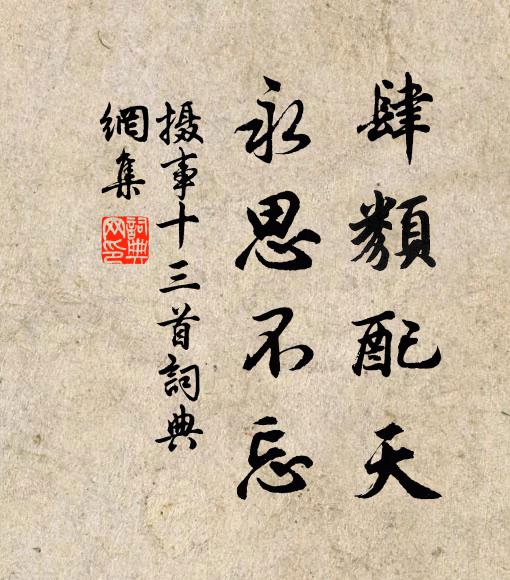 肆類配天
永思不忘
摄事十三首詞典
網集
詞典网印